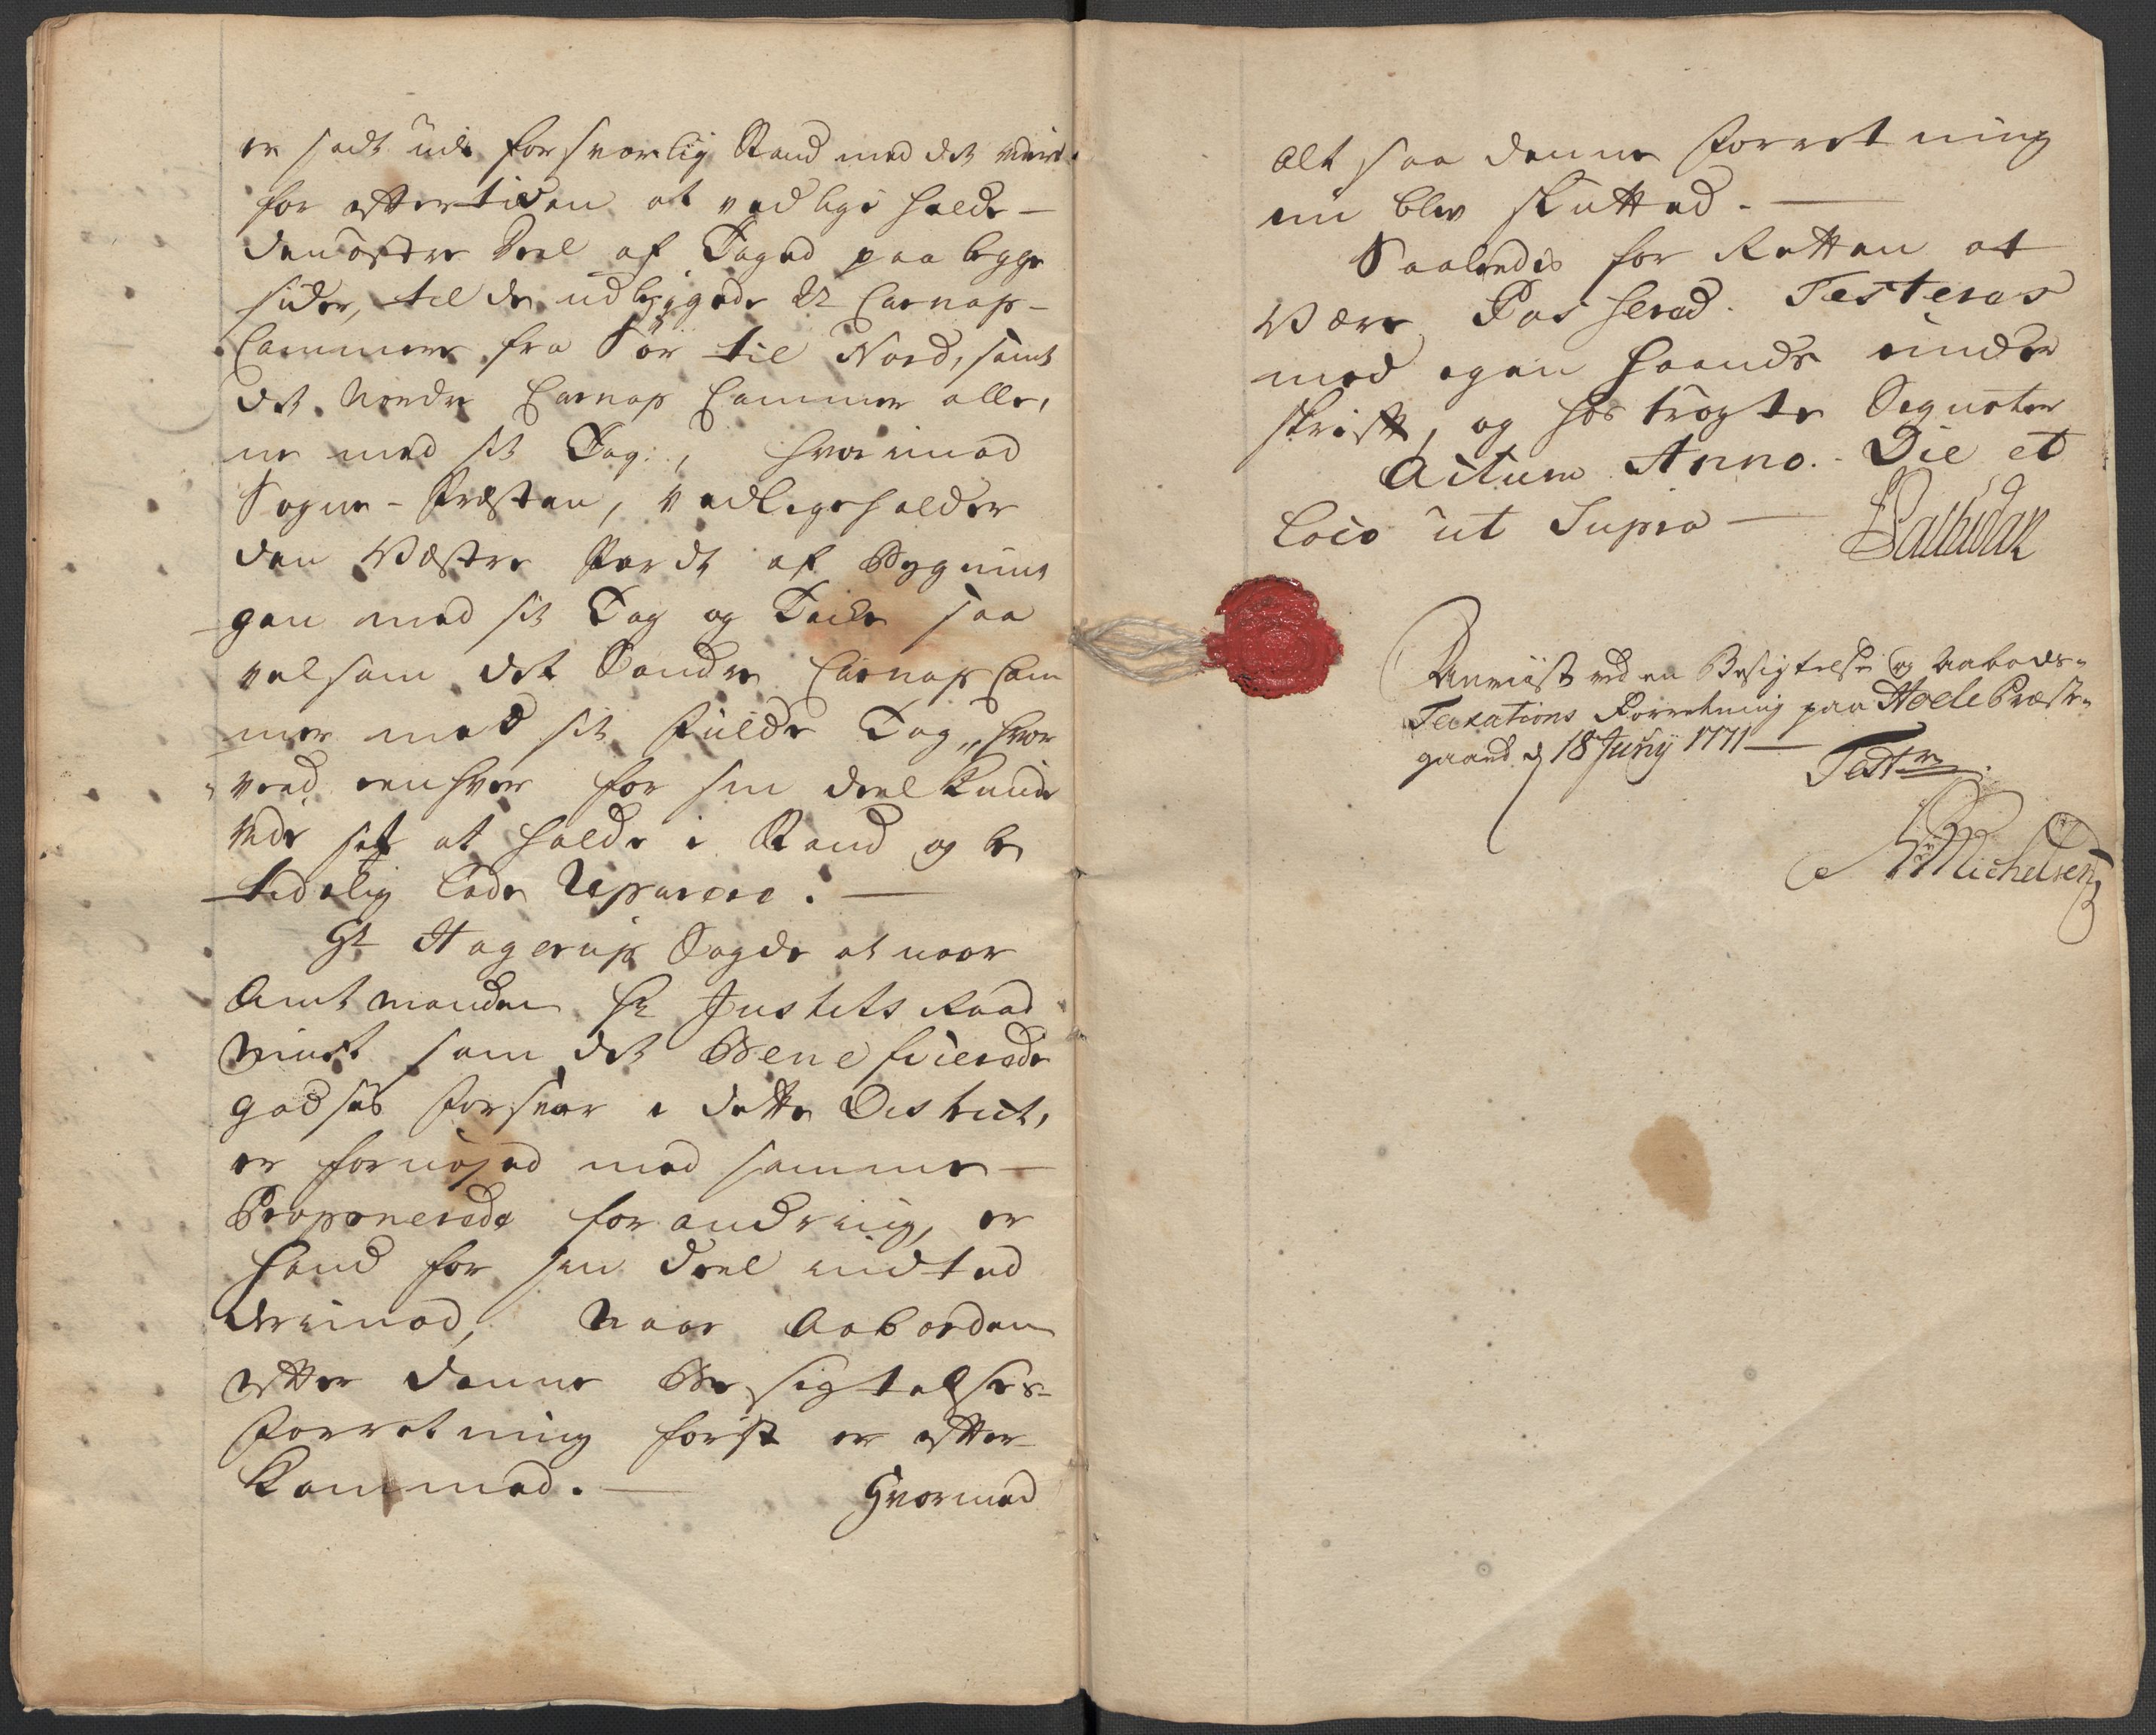 er sadt udi forsvarlig Stand med det videre
for efftertiden at vedlige holde –
den östre Deel af Taged paa begge
sider, til de udbyggede 2de Carnap –
Cammere fra Sör til Nord, samt
det Nordre Carnap Cammer alle,
ne med sit Tag, hvorimod
Sogne-Præsten, vedligeholder
den Væstre Pardt af Bygnin
gen med sit Tag og Deele saa
velsom det Söndre Carnap Cam
mer med sit fulde Tag, hvor
ved eenhver for sin deel kunde
vide sig at holde i Stand og be
tidelig lade Reparere. –
Hr Hagerup Sagde at naar
Amtmanden Hr Justits Raad
som det Beneficerede
godses forsvar i dette District,
er fornöjed med samme –
Proponerede forandring, er
hand for sin Deel indted
derimod, naar Aaboeden
effter denne Besigtelses-
Forretning först er effter
kommed. – Hvormed
alt saa denne Forretning
nu blev slutted. –
Saaledis for Retten at
være Passered. Testeres
med egen Haands under
skrifft, og hos trögte Signeter
Actum Anno. Die et
Loco ut Supra –
Anviist ved en Besigtelse og Aabods-
Taxations Forretning paa Hoele Præste-
gaard d 18 Junij 1771 –
Test
Michelsen